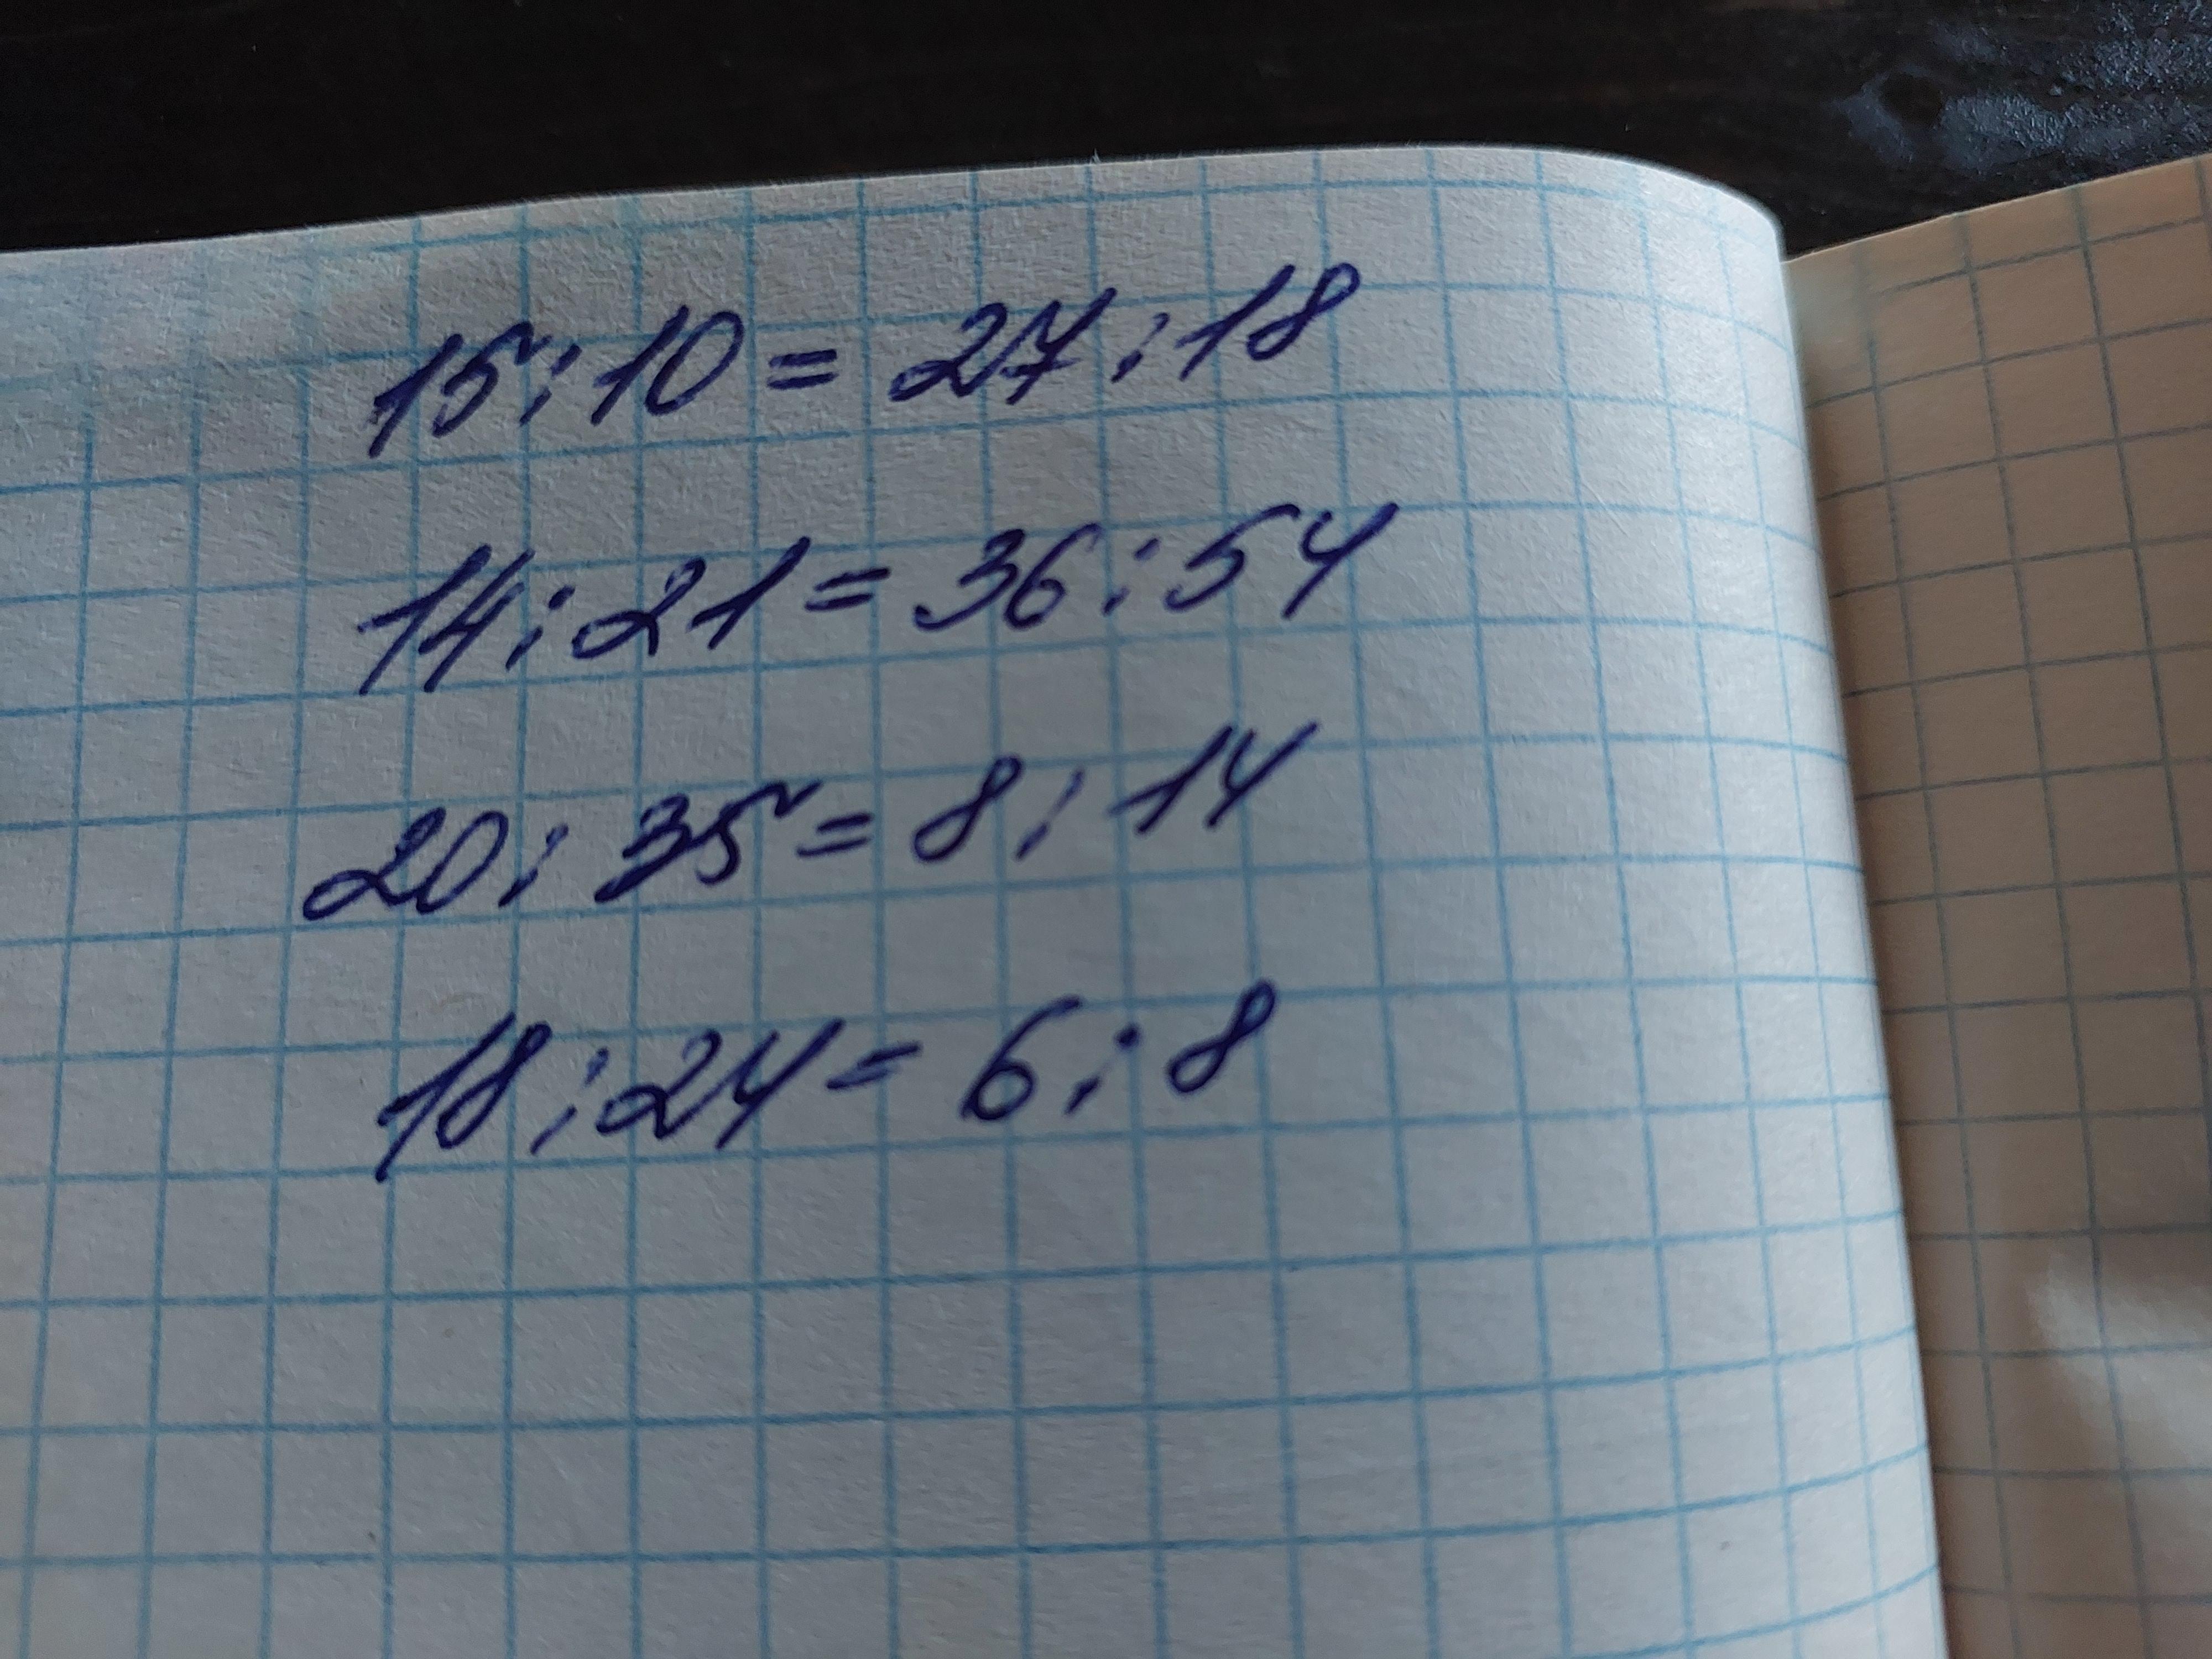 15:10=27:18
14:21=36:54
20:35=8:14
18:24=6:8